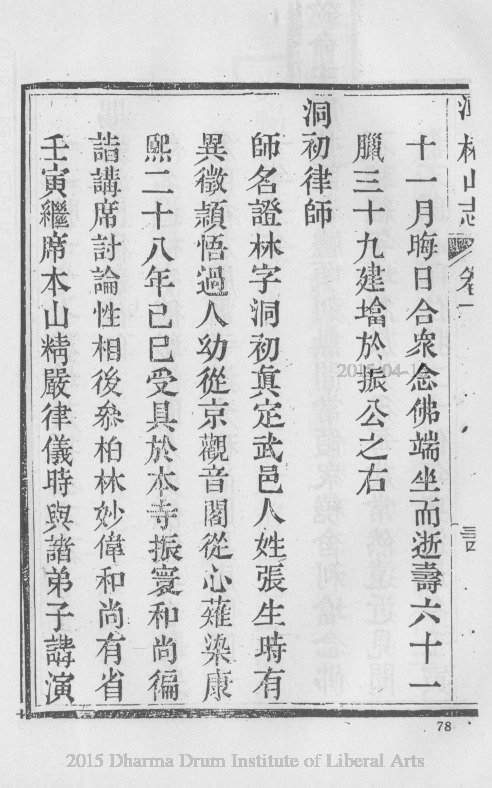 洞林山志 卷一
十一月晦日合衆念佛端坐而逝壽六十一
臘三十九建墖於振公之右
洞初律師
師名證林字洞初眞定武邑人姓張生時有
異徵頴悟過人幼從京觀音閣從心薙染康
熈二十八年己巳受具於本寺振寰和尚徧
詣講席討論性相後叅柏林妙偉和尚有省
壬寅繼席本山精嚴律儀時與諸弟子講演
78
2015 Dharma Drum Institute of Liberal Arts